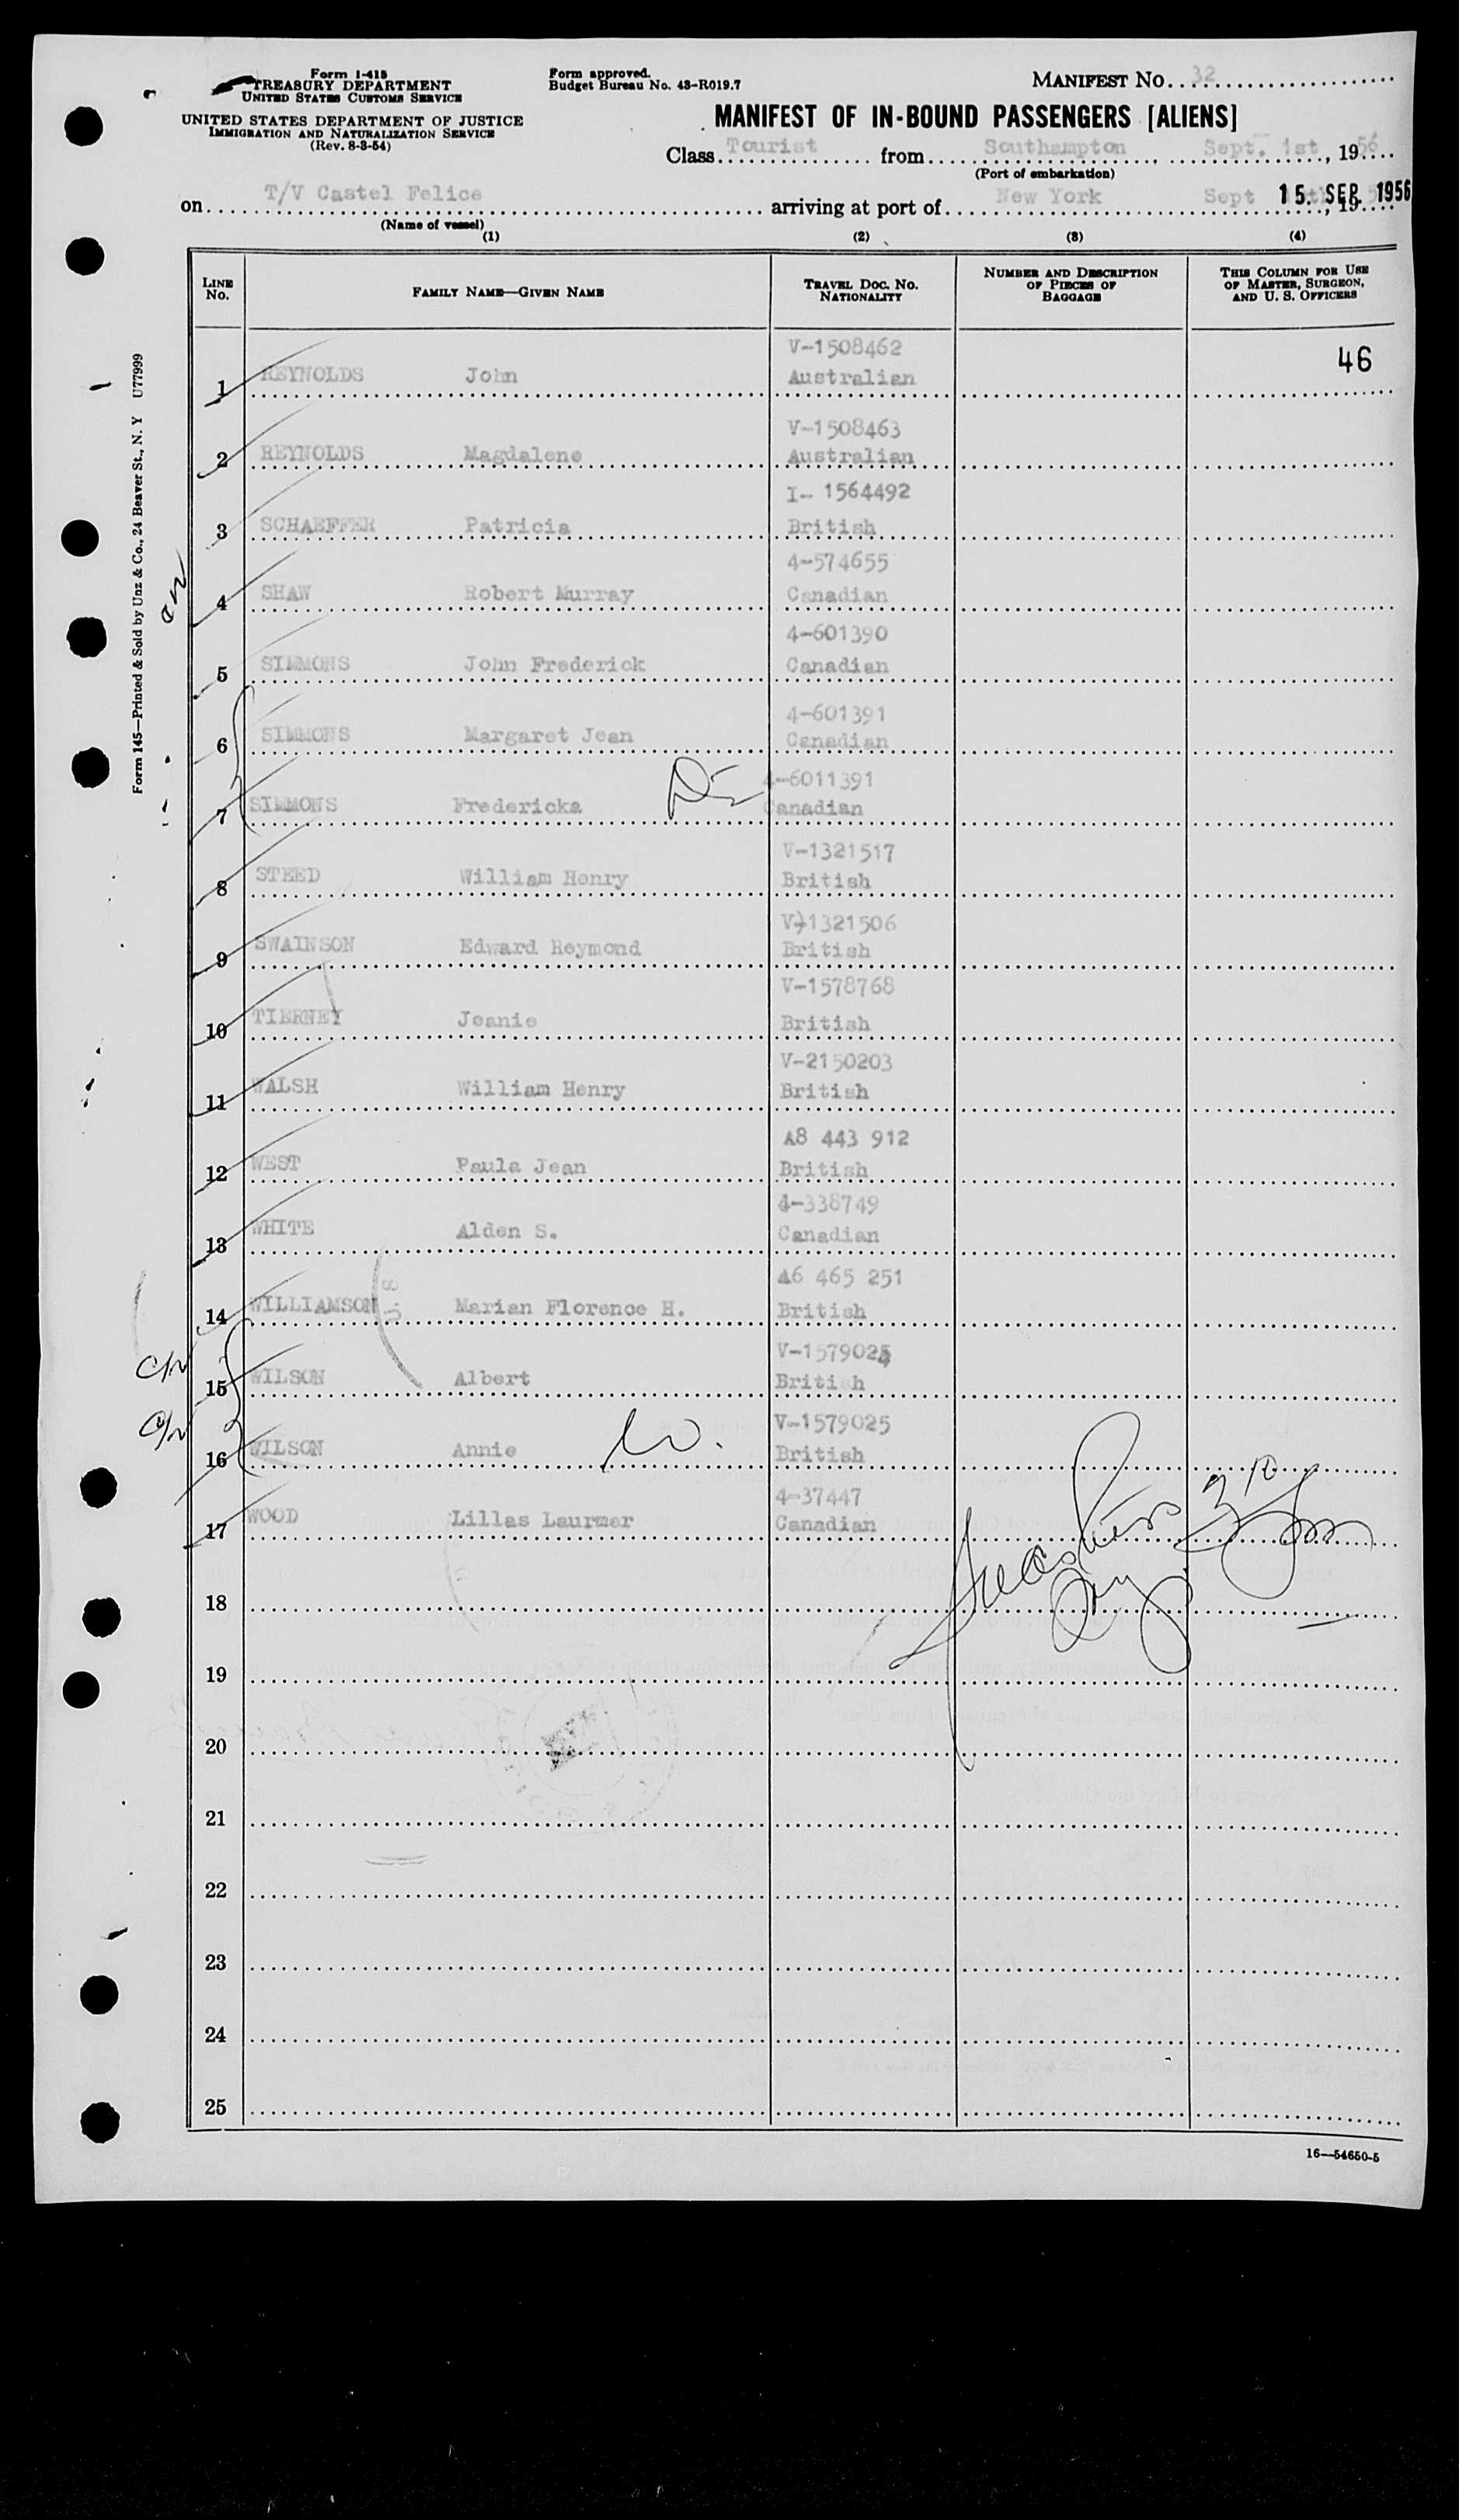 Form I-415
TREASURY DEPARTMENT
UNITED STATES CUSTOMS SERVICE
UNITED STATES DEPARTMENT OF JUSTICE
IMMIGRATION AND NATURALIZATION SERVICE
(Rev. 8-3-54)
Form approved.
Budget Bureau No. 43-R019.7
MANIFEST NO. 32
MANIFEST OF IN-BOUND PASSENGERS [ALIENS]
Class Tourist from Southampton, Sept. 1st, 1956
(Port of embarkation)
on T/V Castel Felice arriving at port of New York Sept 15. SEP. 1956, 19
(Name of vessel)
(1) (2) (3) (4)
LINE NO. FAMILY NAME—GIVEN NAME TRAVEL DOC. NO. NATIONALITY NUMBER AND DESCRIPTION OF PIECES OF BAGGAGE THIS COLUMN FOR USE OF MASTER, SURGEON, AND U. S. OFFICERS
V-1508462 46
1 REYNOLDS John Australian
V-1508463
2 REYNOLDS Magdalene Australian
I- 1564492
3 SCHAEFFER Patricia British
4-574655
4 SHAW Robert Murray Canadian
4-601390
5 SIMMONS John Frederick Canadian
4-601391
6 SIMMONS Margaret Jean Canadian
4-6011391
7 SIMMONS Fredericka Canadian
V-1321517
8 STEED William Henry British
V)1321506
9 SWAINSON Edward Reymond British
V-1578768
10 TIERNEY Jeanie British
V-2150203
11 WALSH William Henry British
A8 443 912
12 WEST Paula Jean British
4-338749
13 WHITE Alden S. Canadian
A6 465 251
14 WILLIAMSON Marian Florence H. British
V-1579024
15 WILSON Albert British
V-1579025
16 WILSON Annie British
4-37447
17 WOOD Lillas Laurmer Canadian
18
19
20
21
22
23
24
25
16—54650-5
Form 145—Printed & Sold by Unz & Co., 24 Beaver St., N. Y U77999